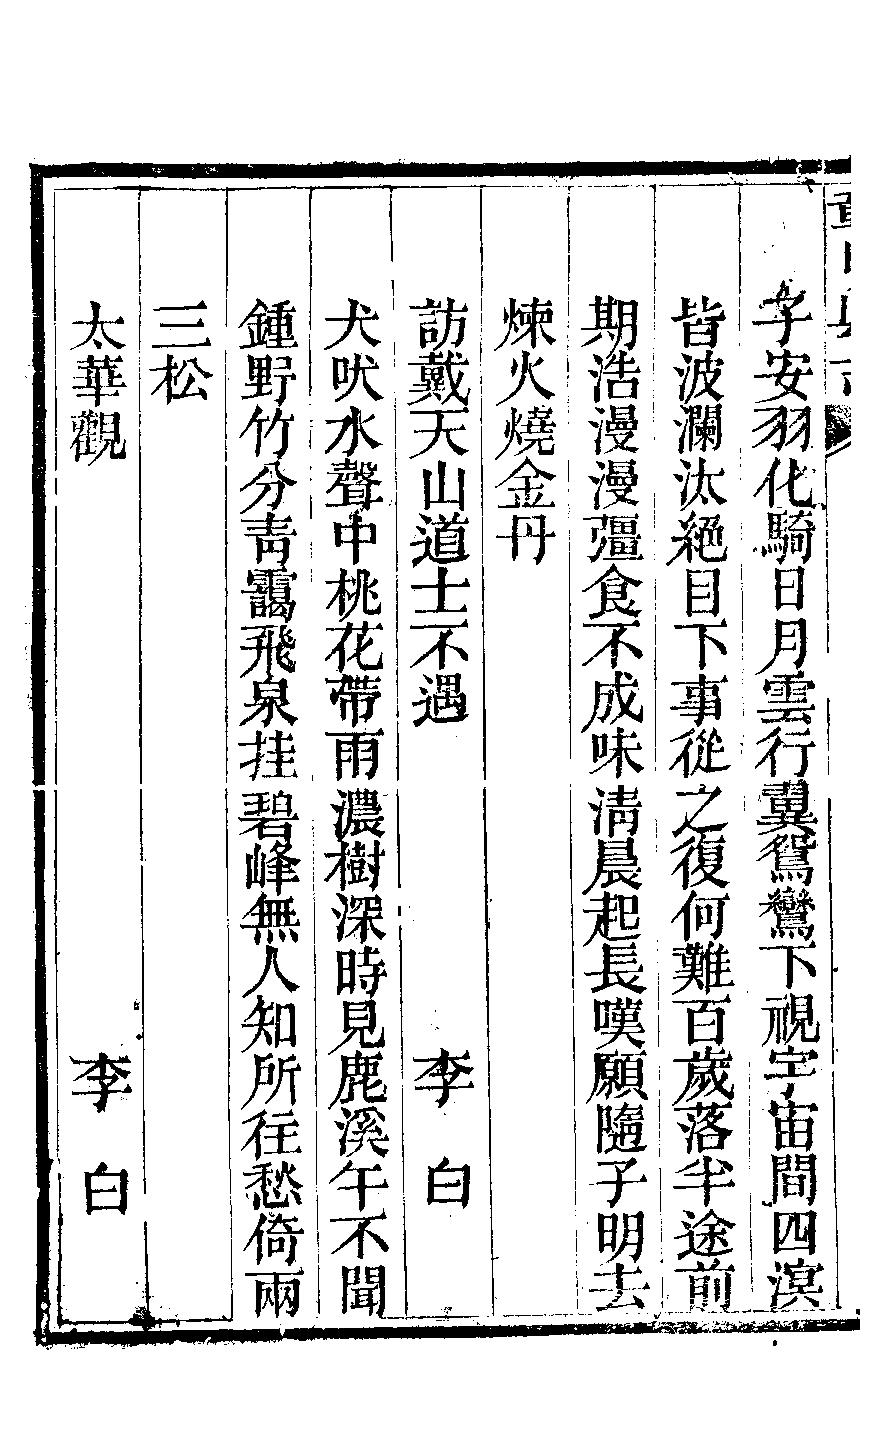 子安羽化騎日月雲行翼鴛鸞下視宇宙間四溟
皆波瀾汰絕目下事從之復何難百歲落半途前
期浩漫漫彊食不成味清晨起長嘆願隨子明去
煉火燒金丹
訪戴天山道士不遇 李白
犬吠水聲中桃花帶雨濃樹深時見鹿溪午不聞
鍾野竹分靑靄飛泉挂碧峰無人知所往愁倚兩
三松
太華觀 李白